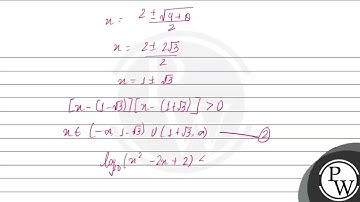 x = 2 ± √4+8 / 2
x = 2 ± 2√3 / 2
x = 1 ± √3
[x - (1-√3)][x - (1+√3)] > 0
x ∈ (-∞, 1-√3) ∪ (1+√3, ∞) — ②
(x² - 2x + 2) <
PW